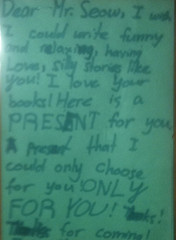 Dear Mr. Seow, I wish
I could write funny
and relaxing, having
Loves, silly stories like
you! I love your
books! Here is a
PRESENT for you,
A present that I
could only choose
for you! ONLY
FOR YOU! Thanks!
Thanks for coming!